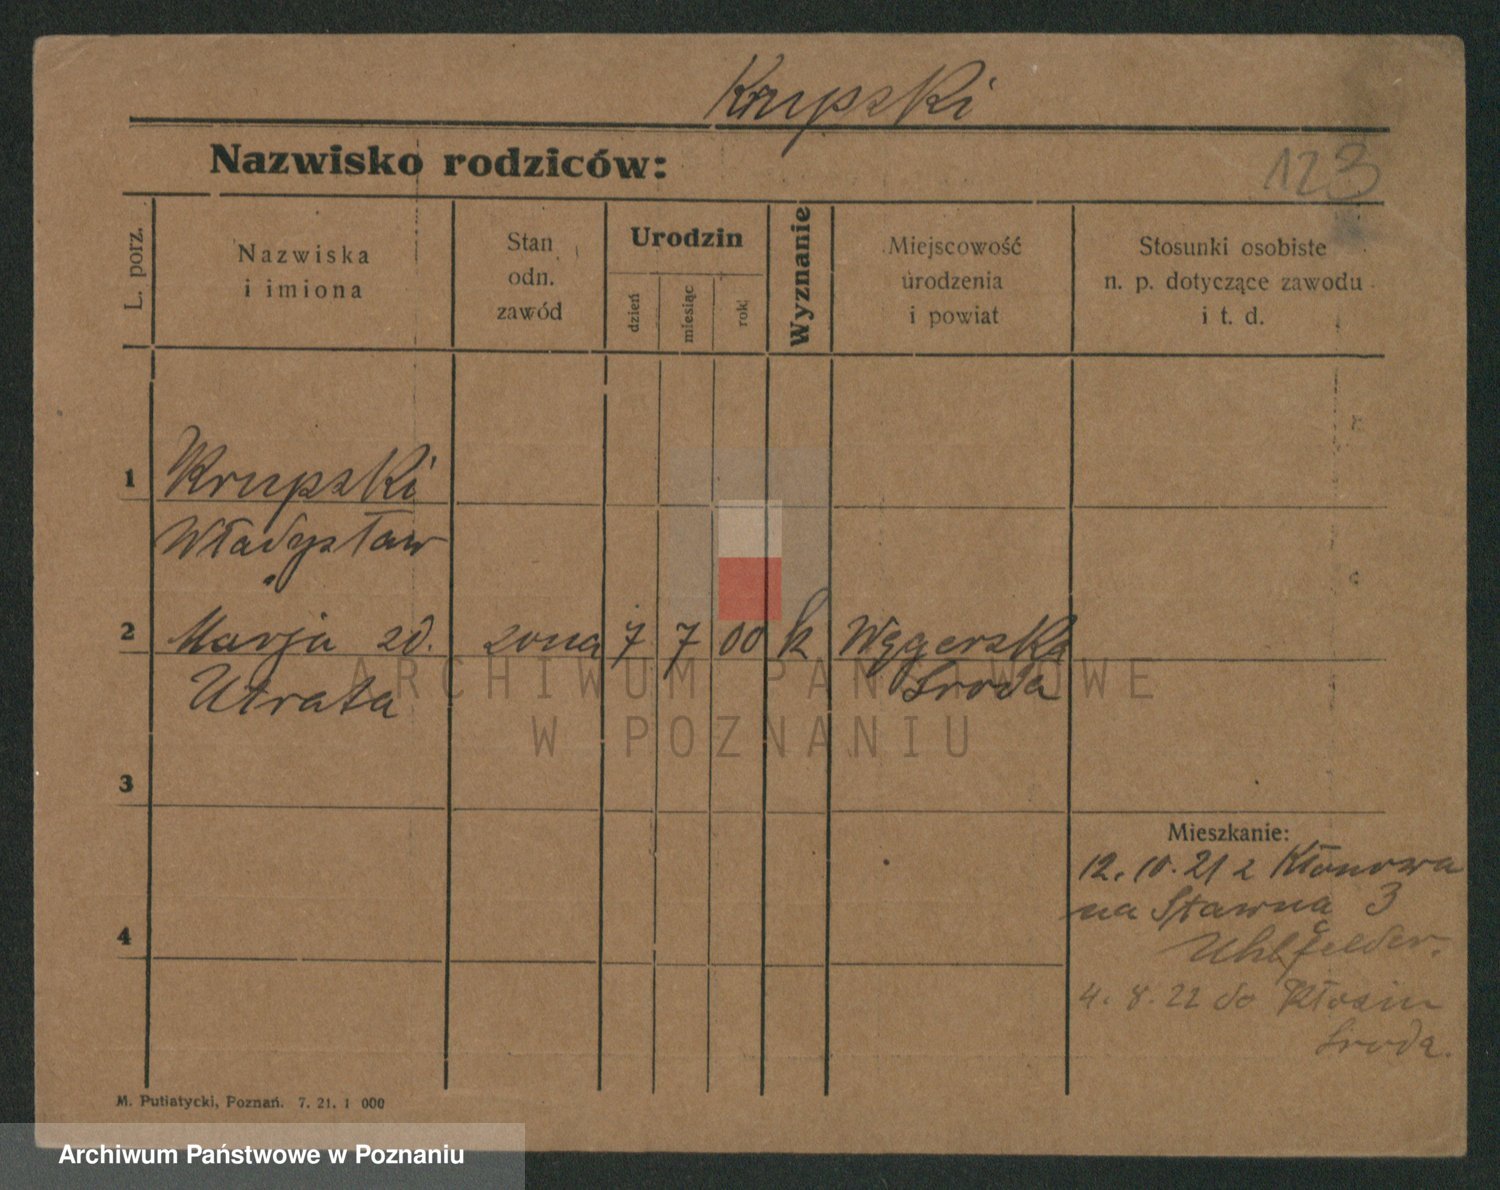 Krupski
Nazwisko rodziców:
123
L. porz.
Nazwiska
i imiona
Stan
odn.
zawód
Urodzin
dzień
miesiąc
rok
Wyznanie
Miejscowość
urodzenia
i powiat
Stosunki osobiste
n. p. dotyczące zawodu
i t. d.
1
Krupski
Władysław
2
Marja zd. żona 7 7 00 k Węgerski
Utrata Sroda
ARCHIWUM PAŃSTWOWE
W POZNANIU
3
Mieszkanie:
12. 10. 21 z Kłonowa
na Stawną 3
4
Uhlfelder.
4. 8. 22 do
Sroda.
M. Putiatycki, Poznań. 7. 21. 1 000
Archiwum Państwowe w Poznaniu